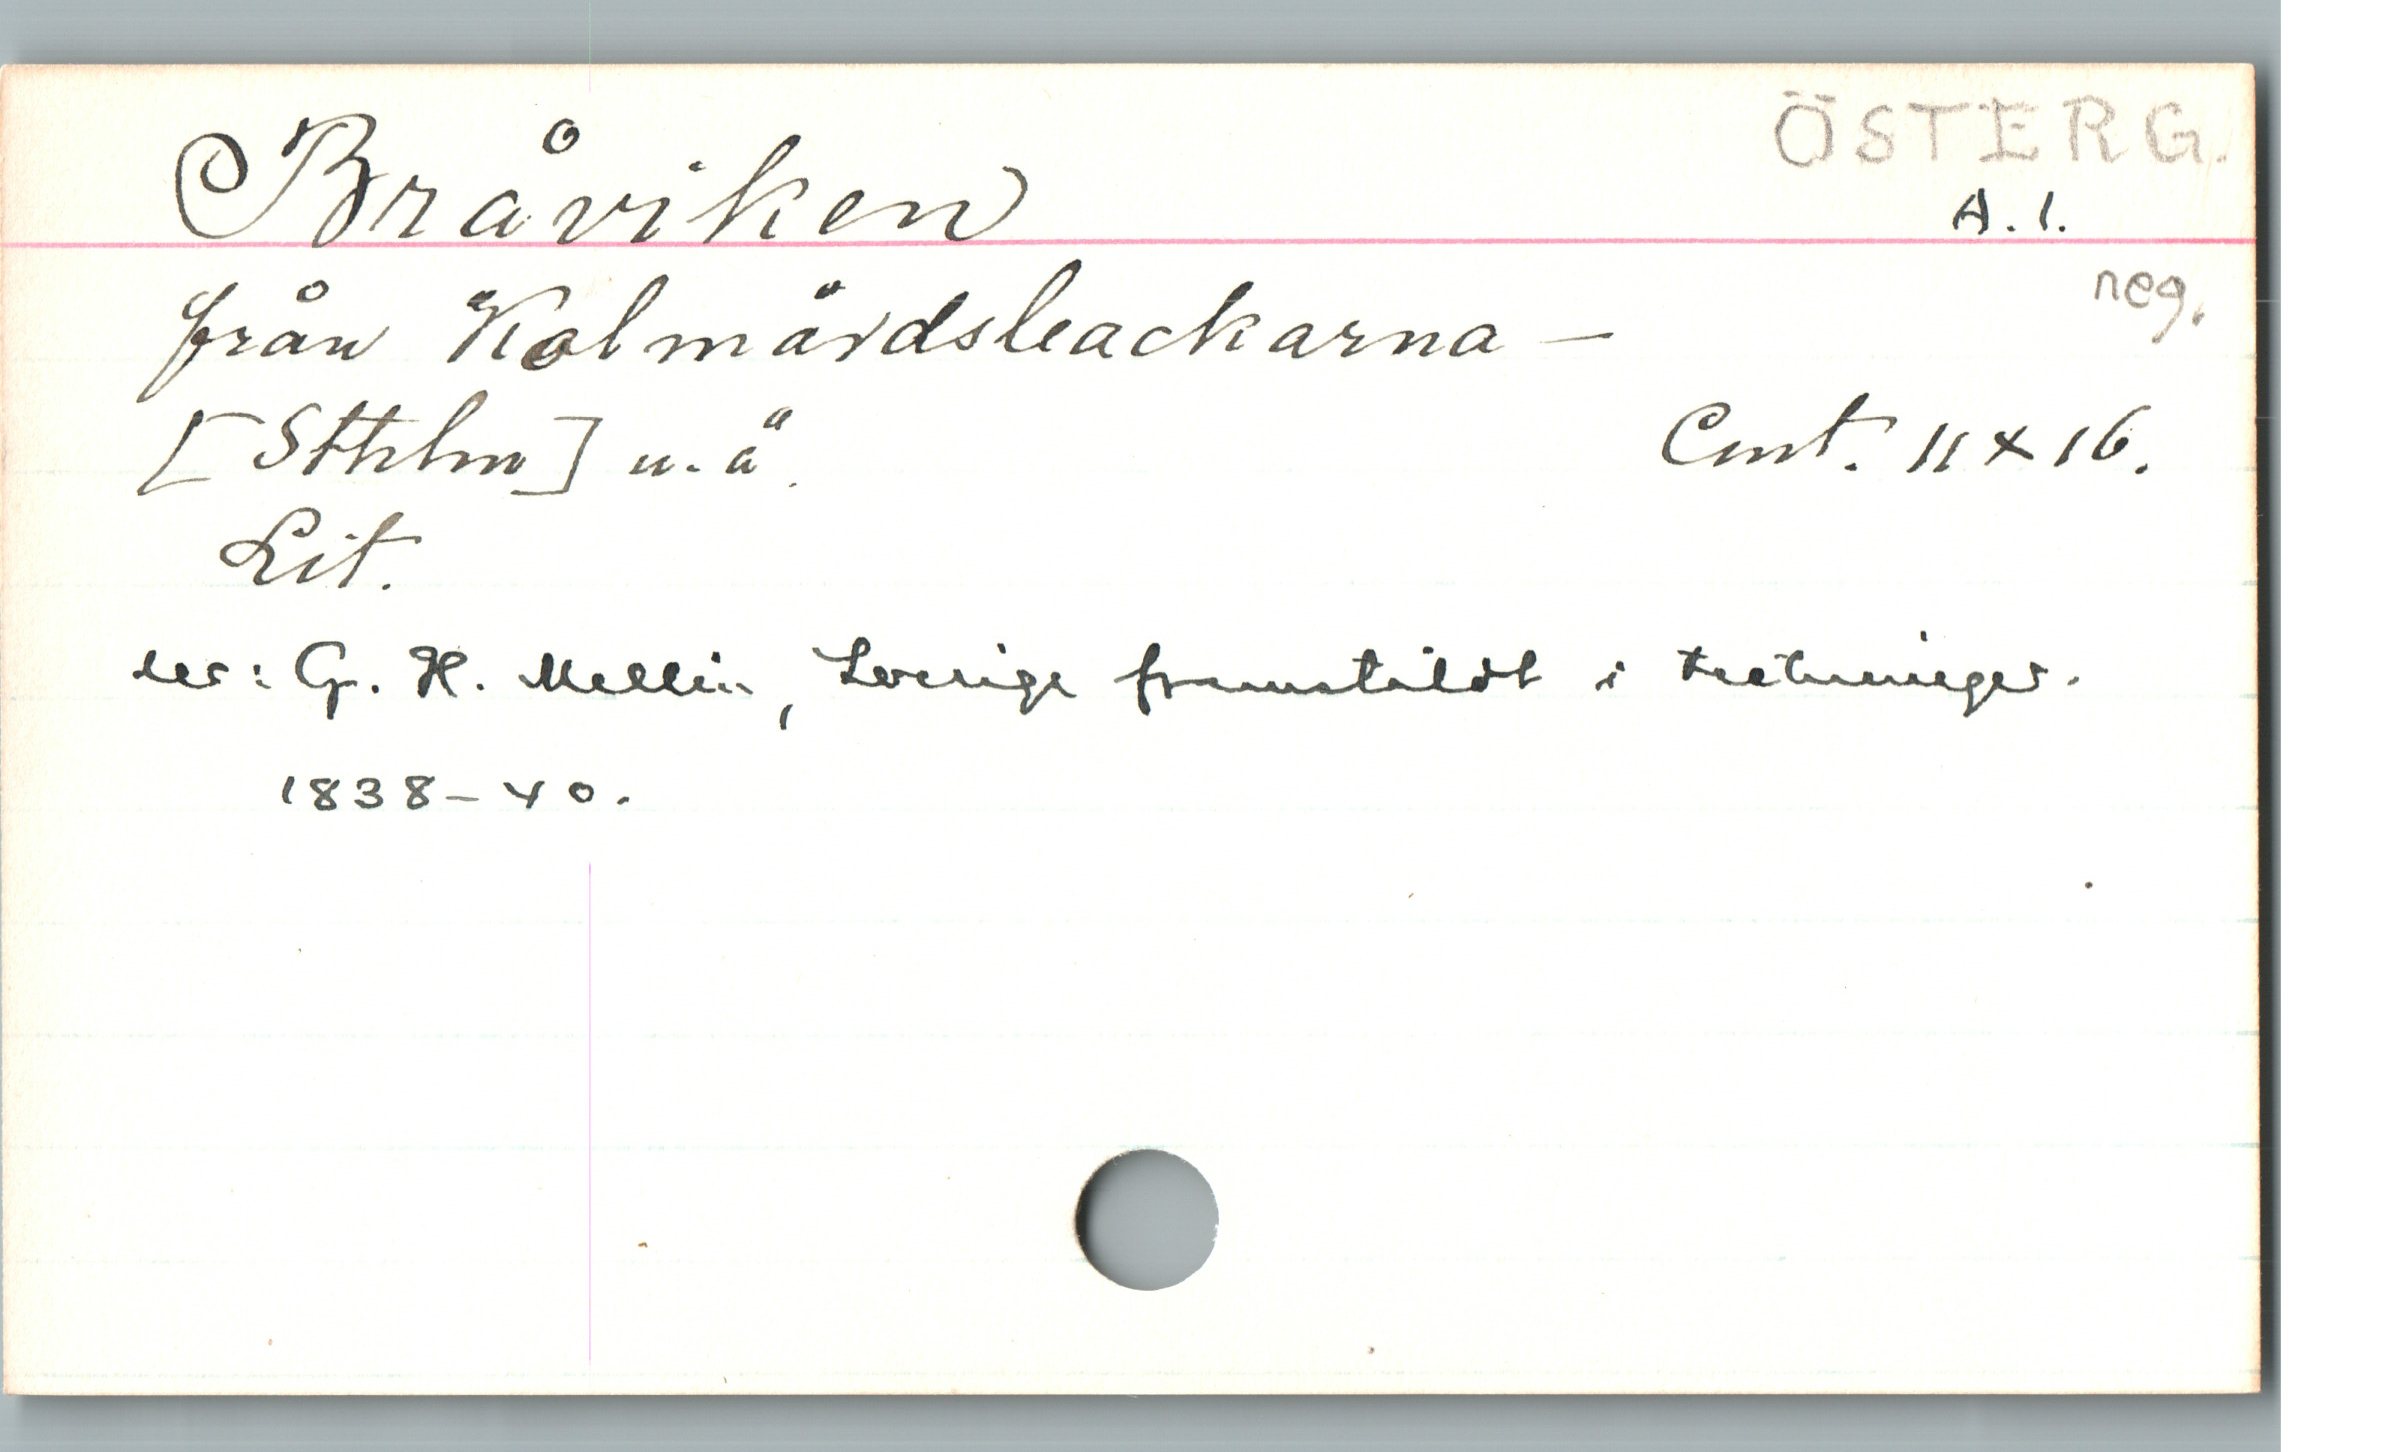 ÖSTERG.
Bråviken A. 1.
neg.
från Kolmårdsbackarna —
[Sthlm] u. ä. Cmt. 11 x 16.
Lit.
ur: G. H. Mellin, Sverige framstäldt i teckningar.
1838-40.